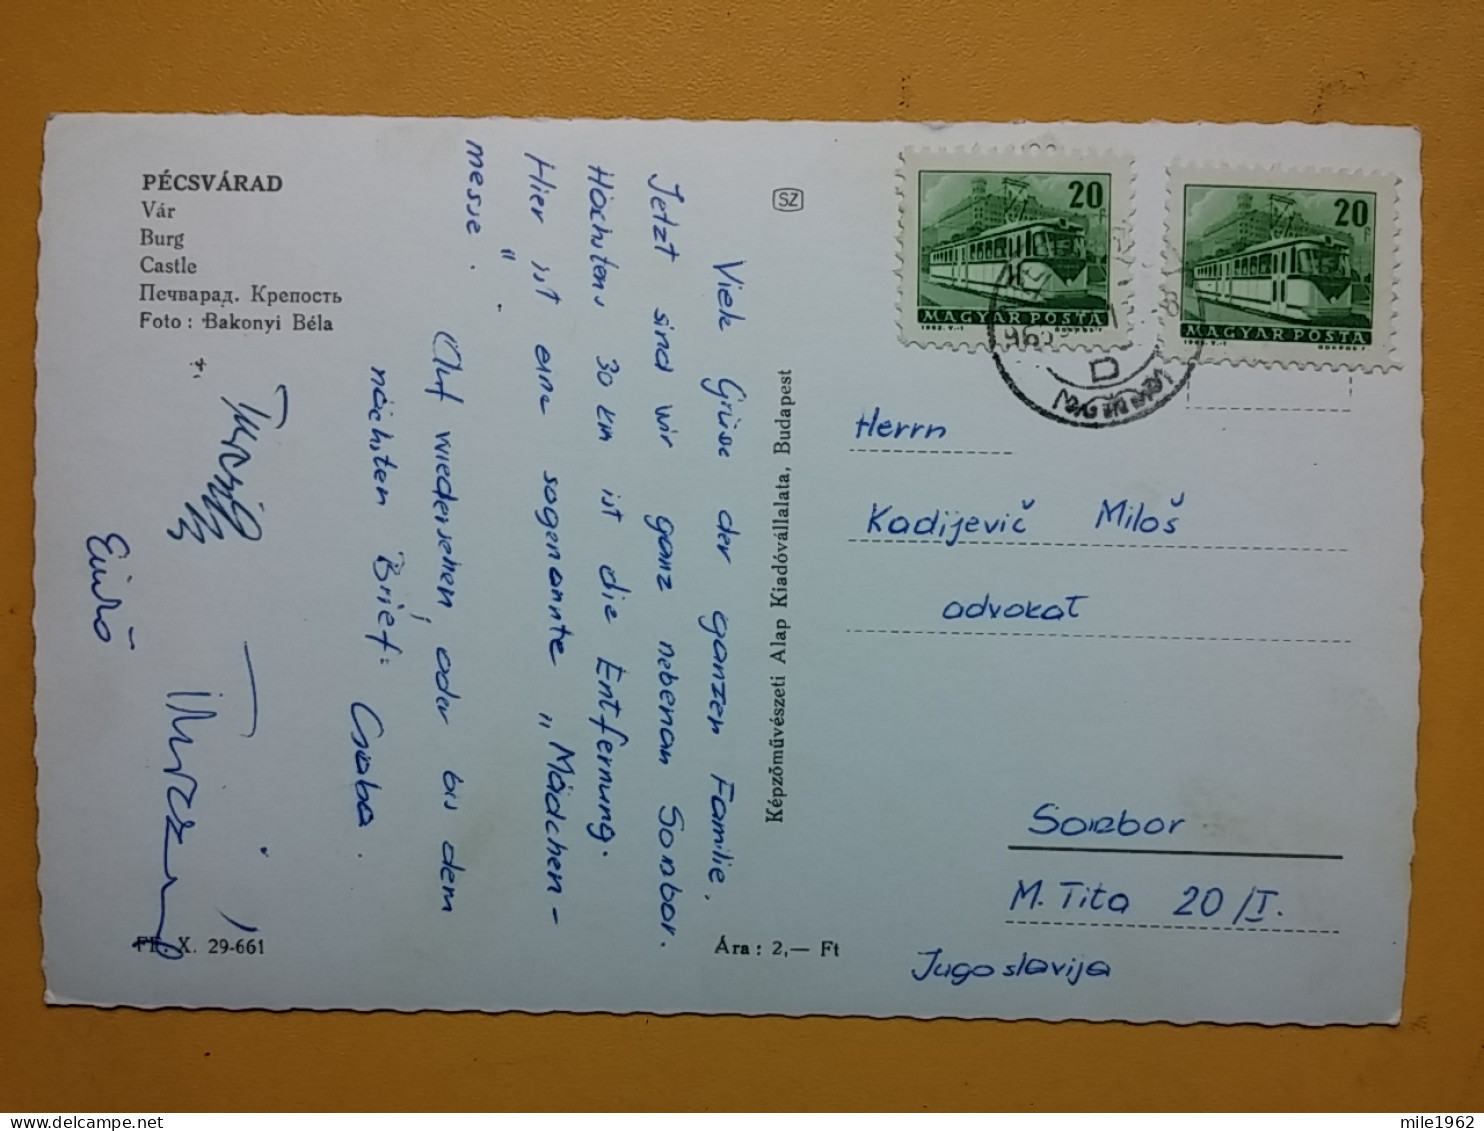 PÉCSVÁRAD
Vár
Burg
Castle
Печварад. Крепость
Foto : Bakonyi Béla
Viele Grüse der ganzen Familie.
Jetzt sind wir ganz nebenan Sombor.
Höchstens 30 km ist die Entfernung.
Hier ist eine sogenannte „Mädchen-
messe."
Auf wiedersehen, oder bis dem
nächsten Brief: Csaba.
Enikő
FF. X. 29-661
Ára : 2,— Ft
Képzőművészeti Alap Kiadóvállalata, Budapest
SZ
20
F
MAGYAR POSTA
20
F
MAGYAR POSTA
D
Herrn
Kadijevič Miloš
advokat
Sombor
M. Tita 20/I.
Jugoslavija
mile1962